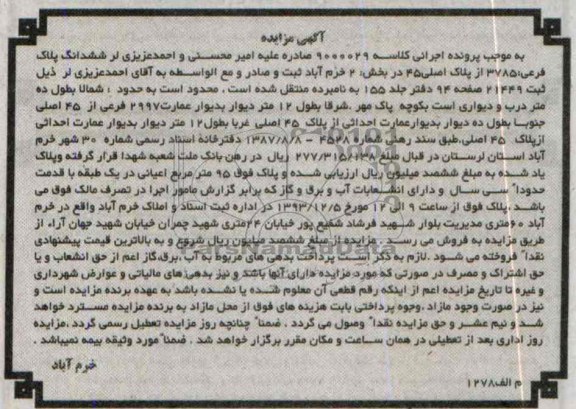 آگهی مزایده
به موجب پرونده اجرائی کلاسه ۹۰۰۰۰۲۹ صادره علیه امیر محسنی و احمدعزیزی لر ششدانگ پلاک
فرعی؛۳۷۸۵ از پلاک اصلی۴۵ در بخش: ۲ خرم آباد ثبت و صادر و مع الواسطه به آقای احمدعزیزی لر ذیل
ثبت ۲۱۴۴۹ صفحه ۹۴ دفتر جلد ۱۵۵ به نامبرده منتقل شده است . محدود است به حدود ؛ شمالا بطول ده
متر درب و دیواری است بکوچه پاک مهر .شرقا بطول ۱۲ متر دیوار بدیوار عمارت۲۹۹۷ فرعی از ۴۵ اصلی
جنوبا بطول ده دیوار بدیوارعمارت احداثی از پلاک ۴۵ اصلی غربا بطول۱۲ متر دیوار بدیوار عمارت احداثی
ازپلاک ۴۵ اصلی.طبق سند رهنی شماره ۴۵۲۸ - ۱۳۸۷/۸/۸ دفترخانه اسناد رسمی شماره ۳۰ شهر خرم
آباد استان لرستان در قبال مبلغ ۲۷۷/۳۱۵/۱۳۸ ریال در رهن بانک ملت شعبه شهدا قرار گرفته وپلاک
یاد شده به مبلغ ششصد میلیون ریال ارزیابی شده و پلاک فوق ۹۵ متر مربع اعیانی در یک طبقه با قدمت
حدوداً سی سال و دارای انشعابات آب و برق و گاز که برابر گزارش مامور اجرا در تصرف مالک فوق می
باشد .پلاک فوق از ساعت ۹ الی ۱۲ مورخ ۱۳۹۳/۱۲/۵ در اداره ثبت اسناد و املاک خرم آباد واقع در خرم
آباد ۶۰متری مدیریت بلوار شهید فرشاد شفیع پور خیابان ۲۴متری شهید چمران خیابان شهید جهان آراء از
طریق مزایده به فروش می رسد . مزایده از مبلغ ششصد میلیون ریال شروع و به بالاترین قیمت پیشنهادی
نقداً فروخته می شود .لازم به ذکر است پرداخت بدهی های مربوط به آب ،برق،گاز اعم از حق انشعاب و یا
حق اشتراک و مصرف در صورتی که مورد مزایده دارای آنها باشد و نیز بدهی های مالیاتی و عوارض شهرداری
و غیره تا تاریخ مزایده اعم از اینکه رقم قطعی آن معلوم شده یا نشده باشد به عهده برنده مزایده است و
نیز در صورت وجود مازاد ،وجوه پرداختی بابت هزینه های فوق از محل مازاد به برنده مزایده مسترد خواهد
شد و نیم عشر و حق مزایده نقداً وصول می گردد . ضمناً چنانچه روز مزایده تعطیل رسمی گردد ،مزایده
روز اداری بعد از تعطیلی در همان ساعت و مکان مقرر برگزار خواهد شد . ضمناً مورد وثیقه بیمه نمیباشد .
خرم آباد
م الف۱۲۷۸